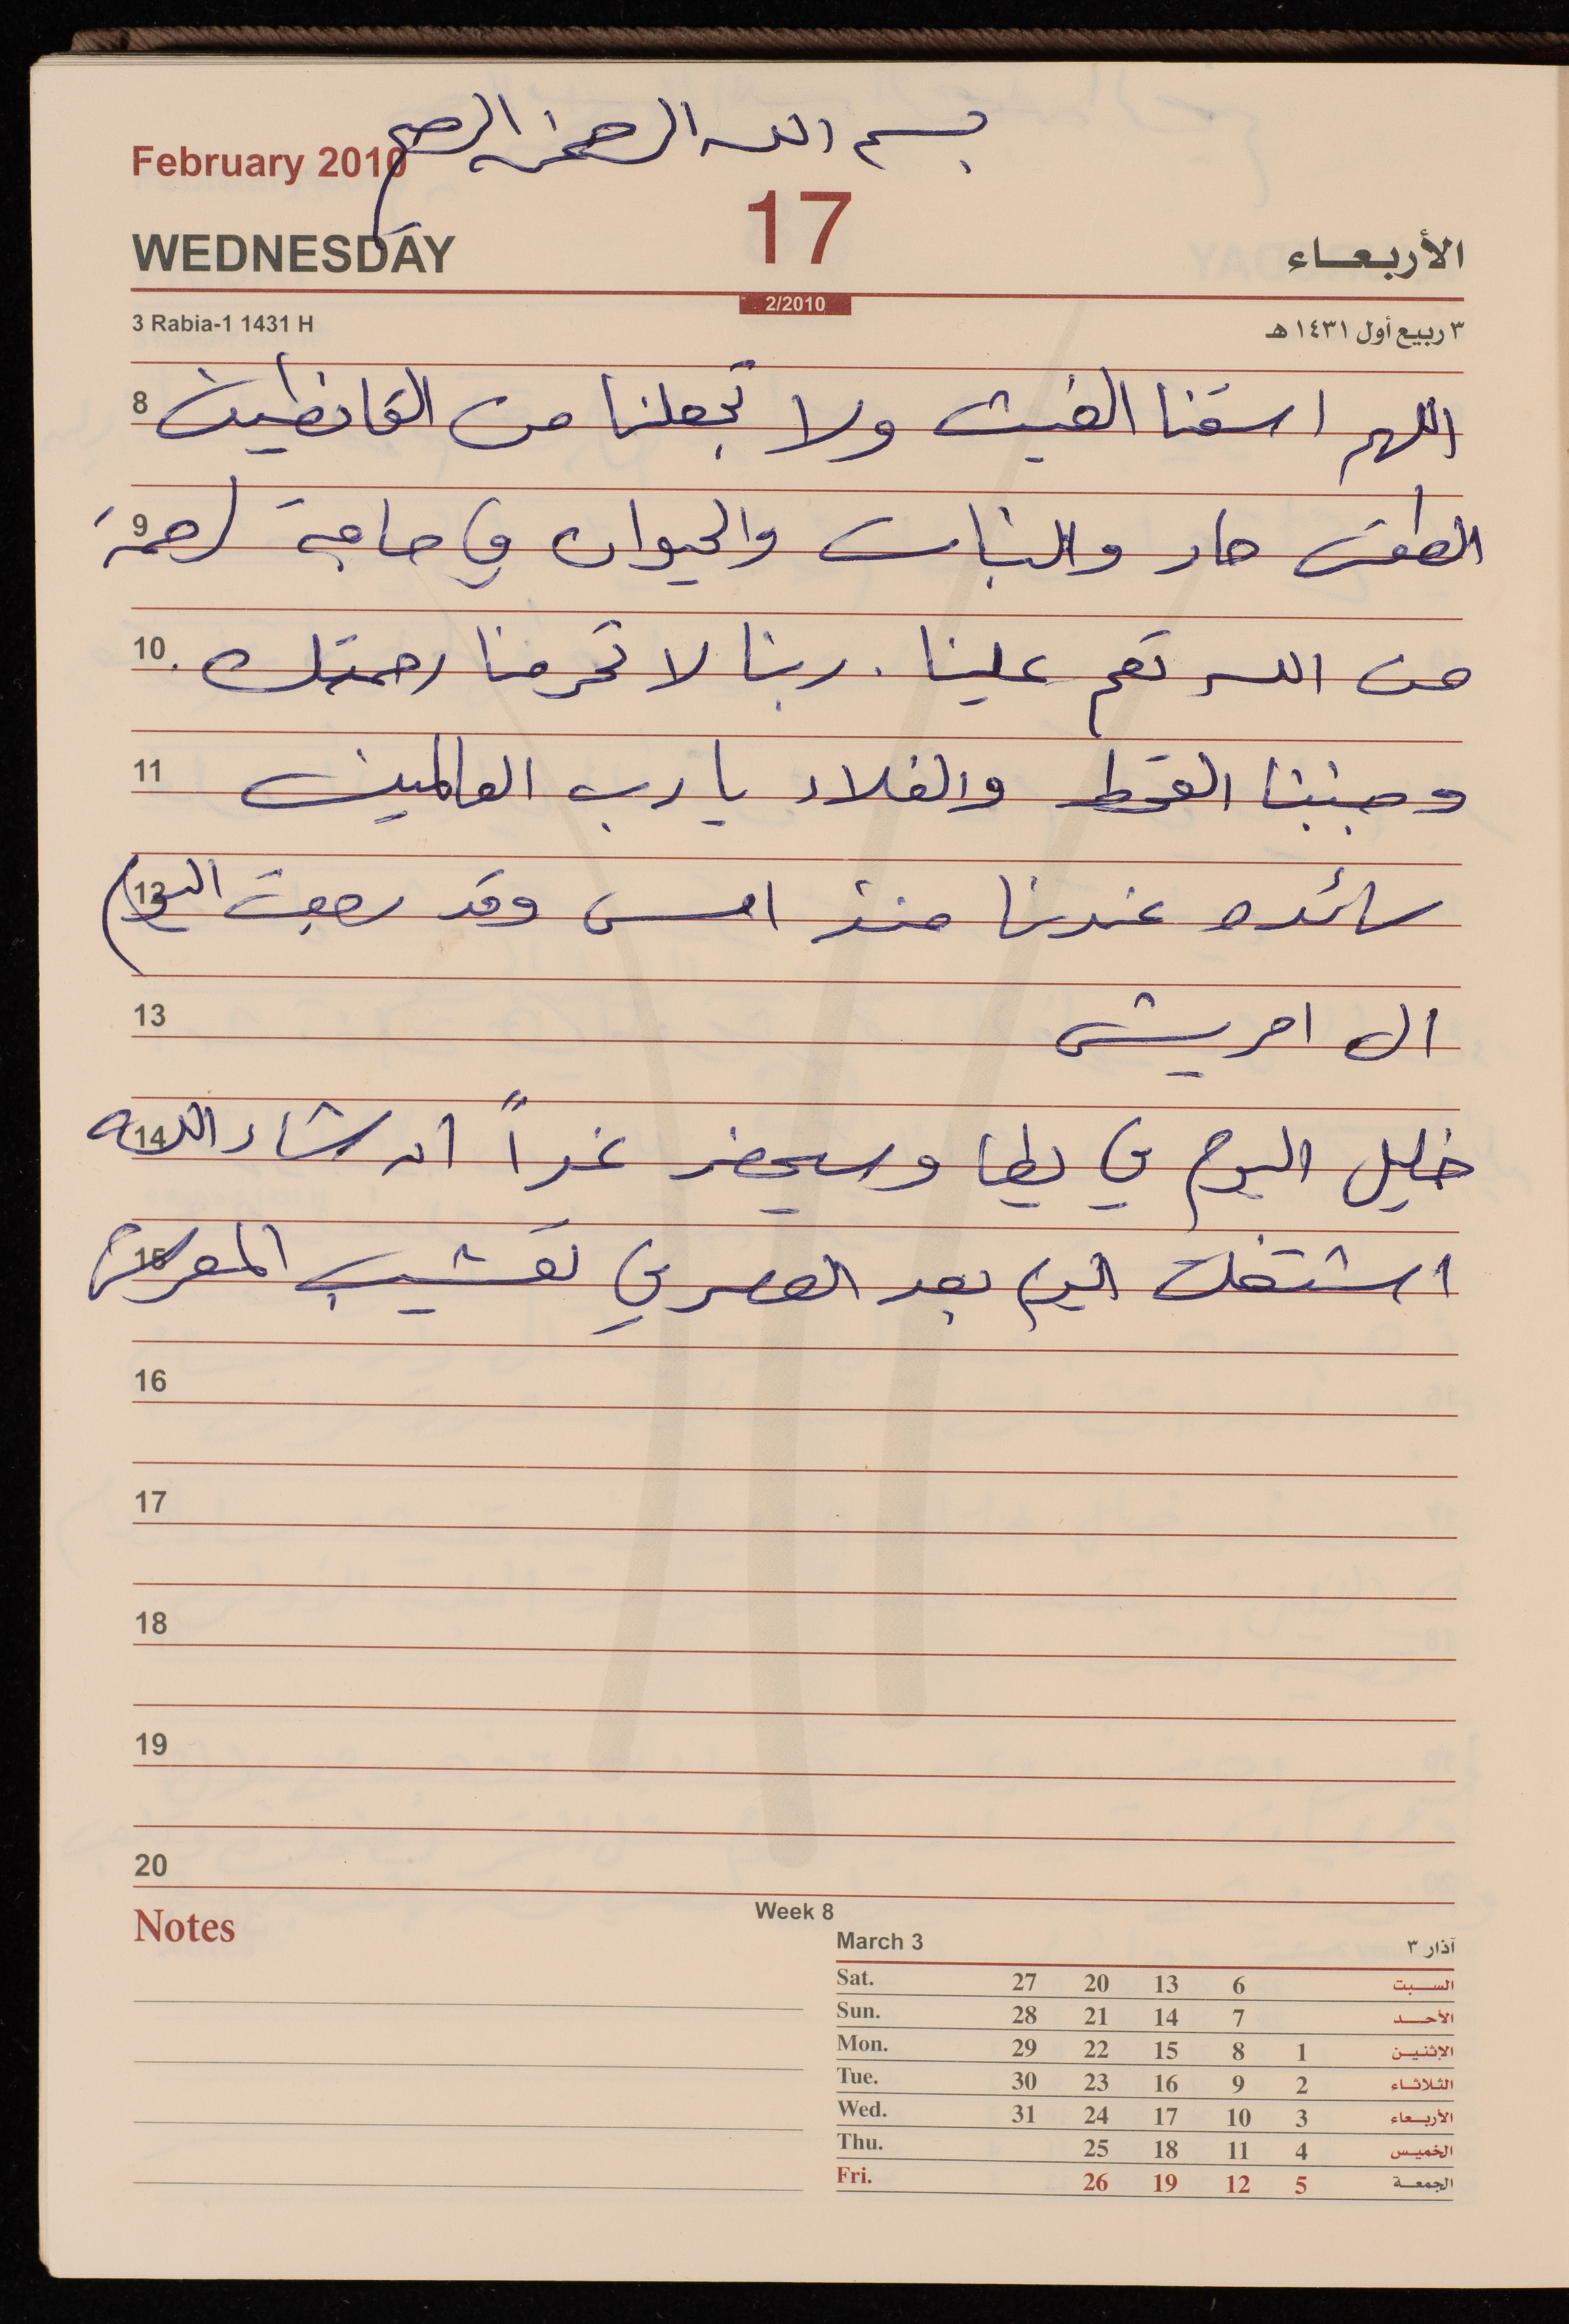 بسم الله الرحمن الرحيم
February 2010
17
WEDNESDAY
الأربعاء
2/2010
3 Rabia-1 1431 H
٣ ربيع أول ١٤٣١ هـ
8 اللهم اسقنا الغيث ولا تجعلنا من القانطين
9 الطقس حار والنبات والحيوان في حاجة لرحمة
10 من الله تعم علينا . ربنا لا تحرمنا رحمتك .
11 وجنبنا القحط والغلاء يا رب العالمين
12 سائده عندنا منذ امس وقد رجعت اليوم
13 الى امريش
14 خليل اليوم في يطا وسيحضر غداً ان شاء الله
15 اشتغلت اليوم بعد العصر في تعشيب المعرش
16
17
18
19
20
Notes
Week 8
March 3
آذار ٣
Sat. 27 20 13 6 السبت
Sun. 28 21 14 7 الأحد
Mon. 29 22 15 8 1 الإثنين
Tue. 30 23 16 9 2 الثلاثاء
Wed. 31 24 17 10 3 الأربعاء
Thu. 25 18 11 4 الخميس
Fri. 26 19 12 5 الجمعة